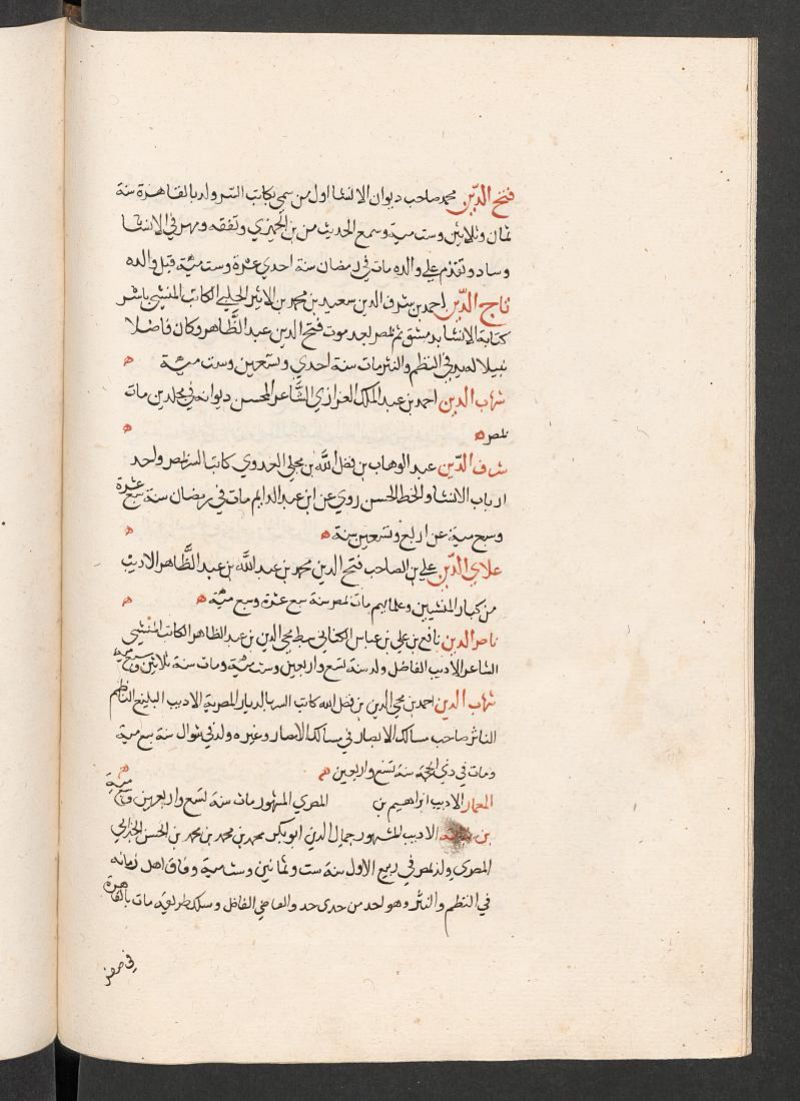 فتح الدين محمد صاحب ديوان الانشا اول من سمي بكاتب السر ولد بالقاهرة سنة
ثمان وثلاثين وست مية وسمع الحديث من بن الجميزي وتفقه ومهر في الانشا
وساد وتقدم علي والده مات في رمضان سنة احدي عشرة وست مئية قبل والده
تاج الدين احمد بن شرف الدين سعيد بن محمد بن الاثير الحلبي الكاتب المنشي باشر
كتابة الانشا بدمشق ثم بمصر بعد موت فتح الدين عبد الظاهر وكان فاضلا
نبيلا له يد في النظم والنثر مات سنة احدي وتسعين وست مئية ه
شهاب الدين احمد بن عبد الملك العزازي الشاعر المحسن ديوانه في مجلدين مات
بمصر ه ه
شرف الدين عبد الوهاب بن فضل الله بن مجلي العدوي كاتب السر بمصر واحد
ارباب الانشا والخط الحسن روي عن ابن عبد الدايم مات في رمضان سنة سبع عشرة
وسبع مية عن اربع وتسعين سنة ه ه
علاي الدين علي بن الصاحب فتح الدين محمد بن عبد الله بن عبد الظاهر الاديب
من كبار المنشيين وعلمايهم مات بمصر سنة سبع عشرة وسبع مئية ه ه
ناصر الدين نافع بن علي بن عباس الكناني سبط محي الدين بن عبد الظاهر الكاتب المنشي
الشاعر الاديب الفاضل ولد سنة تسع واربعين وست مئية ومات سنة ثلاثين وسبع مية
شهاب الدين احمد بن محي الدين بن فضل الله كاتب السر بالديار المصرية الاديب البليغ الناظم
الناثر صاحب مسالك الابصار في مسالك الامصار وغيره ولد في شوال سنة سبع مية
ومات في ذي الحجة سنة تسع واربعين ه ه
المعمار الاديب ابراهيم بن المصري المشهور مات سنة تسع واربعين وسبع مئية
بن الاديب المشهور جمال الدين ابو بكر محمد بن محمد بن محمد بن الحسن الجذامي
المصري ولد بمصر في ربيع الاول سنة ست وثمانين وست مية وفاق اهل زمانه
في النظم والنثر وهو احد من حدي حد والقاضي الفاضل وسلك طريقه مات بالقاهرة
في صفر